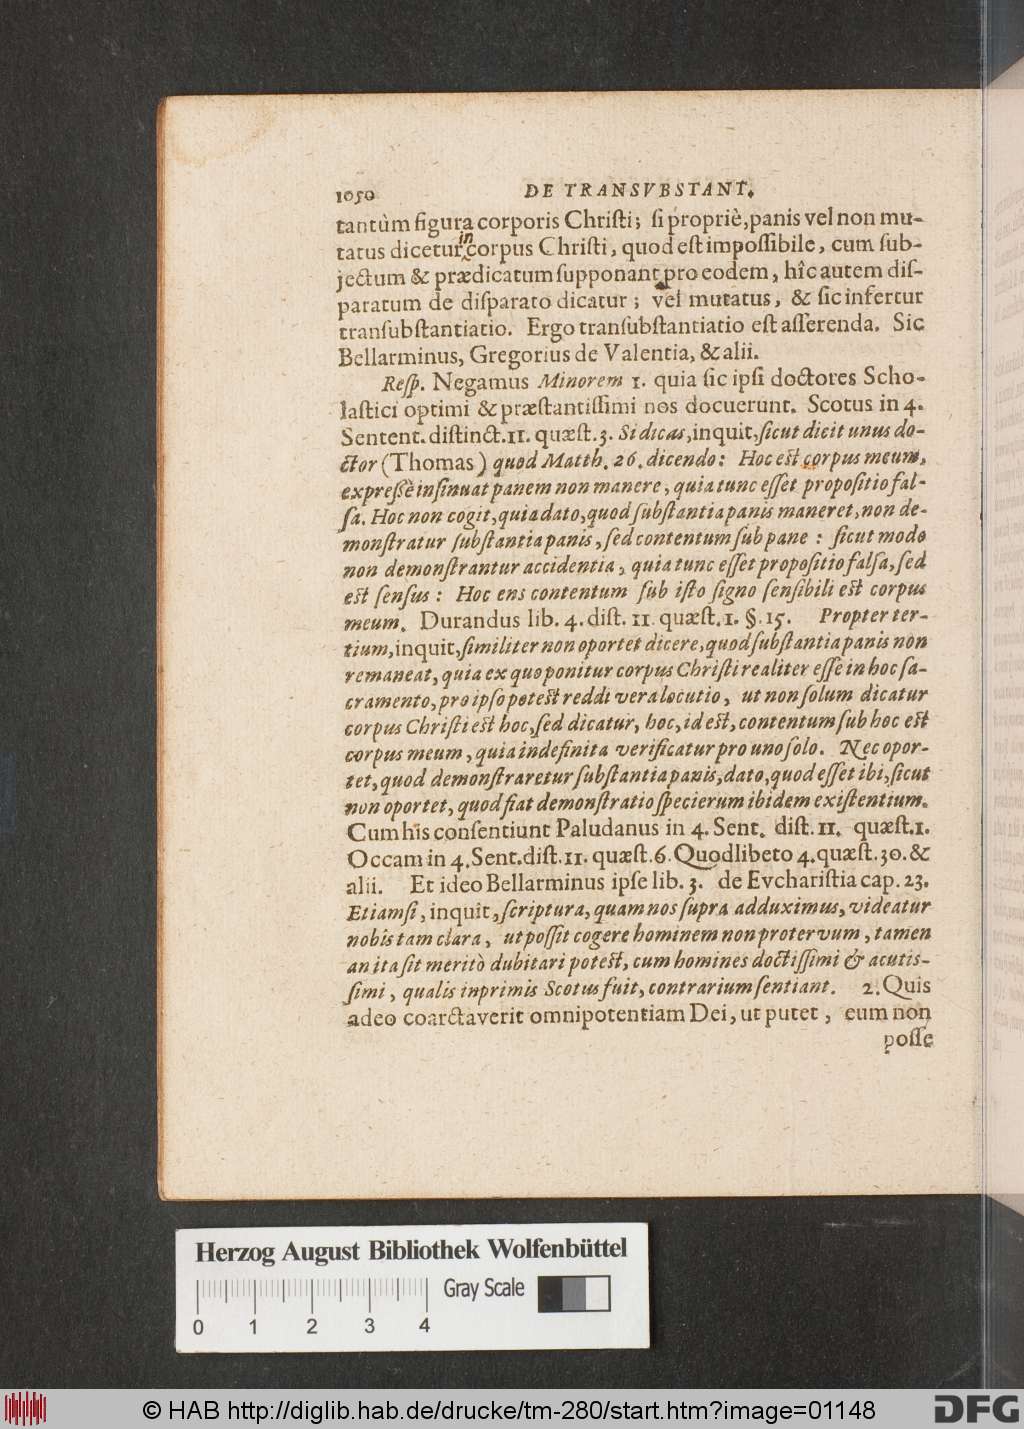 1050 DE TRANSVBSTANT.
tantùm figura corporis Christi; si propriè, panis vel non mu-
tatus dicetur in corpus Christi, quod est impossibile, cum sub-
jectum & prædicatum supponant pro eodem, hîc autem dis-
paratum de disparato dicatur; vel mutatus, & sic infertur
transubstantiatio. Ergo transubstantiatio est asserenda. Sic
Bellarminus, Gregorius de Valentia, & alii.
Resp. Negamus Minorem 1. quia sic ipsi doctores Scho-
lastici optimi & præstantissimi nos docuerunt. Scotus in 4.
Sentent. distinct. 11. quæst. 3. Si dicas, inquit, sicut dicit unus do-
ctor (Thomas) quod Matth. 26. dicendo: Hoc est corpus meum,
expressè insinuat panem non manere, quia tunc esset propositio fal-
sa. Hoc non cogit, quia dato, quod substantia panis maneret, non de-
monstratur substantia panis, sed contentum sub pane: sicut modo
non demonstrantur accidentia, quia tunc esset propositio falsa, sed
est sensus: Hoc ens contentum sub isto signo sensibili est corpus
meum. Durandus lib. 4. dist. 11. quæst. 1. §. 15. Propter ter-
tium, inquit, similiter non oportet dicere, quod substantia panis non
remaneat, quia ex quo ponitur corpus Christi realiter esse in hoc sa-
cramento, pro ipso potest reddi vera locutio, ut non solum dicatur
corpus Christi est hoc, sed dicatur, hoc, id est, contentum sub hoc est
corpus meum, quia indefinita verificatur pro uno solo. Nec opor-
tet, quod demonstraretur substantia panis, dato, quod esset ibi, sicut
non oportet, quod fiat demonstratio specierum ibidem existentium.
Cum his consentiunt Paludanus in 4. Sent. dist. 11. quæst. 1.
Occam in 4. Sent. dist. 11. quæst. 6. Quodlibeto 4. quæst. 30. &
alii. Et ideo Bellarminus ipse lib. 3. de Evcharistia cap. 23.
Etiamsi, inquit, scriptura, quam nos supra adduximus, videatur
nobis tam clara, ut possit cogere hominem non protervum, tamen
an ita sit meritò dubitari potest, cum homines doctissimi & acutis-
simi, qualis inprimis Scotus fuit, contrarium sentiant. 2. Quis
adeo coarctaverit omnipotentiam Dei, ut putet, eum non
posse
Herzog August Bibliothek Wolfenbüttel
Gray Scale
0 1 2 3 4
© HAB http://diglib.hab.de/drucke/tm-280/start.htm?image=01148
DFG